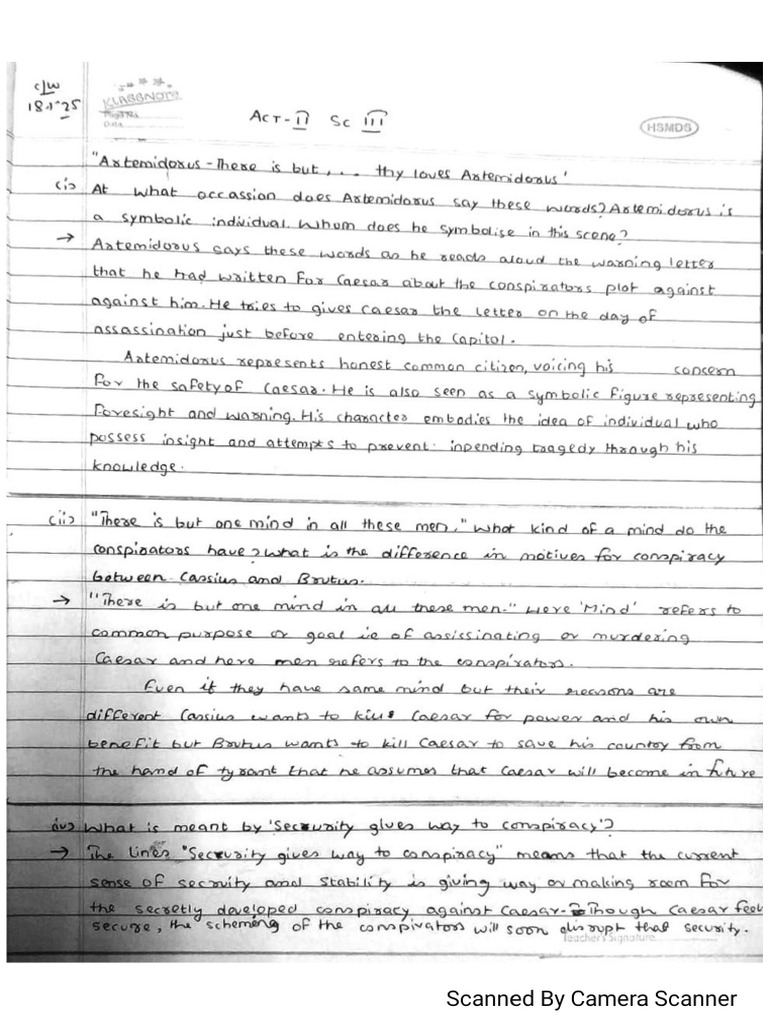 C/W
18.1.25
KLASSNOTE
Page No.
Date
ACT-II Sc III
HSMDS
"Artemidorus - There is but, ... thy loves Artemidorus'
(i) At what occassion does Artemidorus say these words? Artemidorus is
a symbolic individual. Whom does he symbolise in this scene?
→ Artemidorus says these words as he reads aloud the warning letter
that he had written for Caesar about the conspirators plot against
against him. He tries to gives caesar the letter on the day of
assassination just before entering the Capitol.
Artemidorus represents honest common citizen, voicing his concern
for the safety of Caesar. He is also seen as a symbolic figure representing
foresight and warning. His character embodies the idea of individual who
possess insight and attempts to prevent inpending tragedy through his
knowledge.
(ii) "There is but one mind in all these men." What kind of a mind do the
conspirators have? What is the difference in motives for conspiracy
between Cassius and Brutus.
→ "There is but one mind in all these men." Here 'Mind' refers to
common purpose or goal ie of assissinating or murdering
Caesar and here men refers to the conspirators.
Even if they have same mind but their reasons are
different Cassius wants to kill Caesar for power and his own
benefit but Brutus wants to kill Caesar to save his country from
the hand of tyrant that he assumes that Caesar will become in future
(iv) What is meant by 'Secrurity gives way to conspiracy'?
→ The lines "Secrurity gives way to conspiracy" means that the current
sense of secruity and stability is giving way or making room for
the secretly developed conspiracy against Caesar. Though Caesar feel
secure, the scheming of the conspirators will soon disrupt that security.
Teacher's Signature
Scanned By Camera Scanner